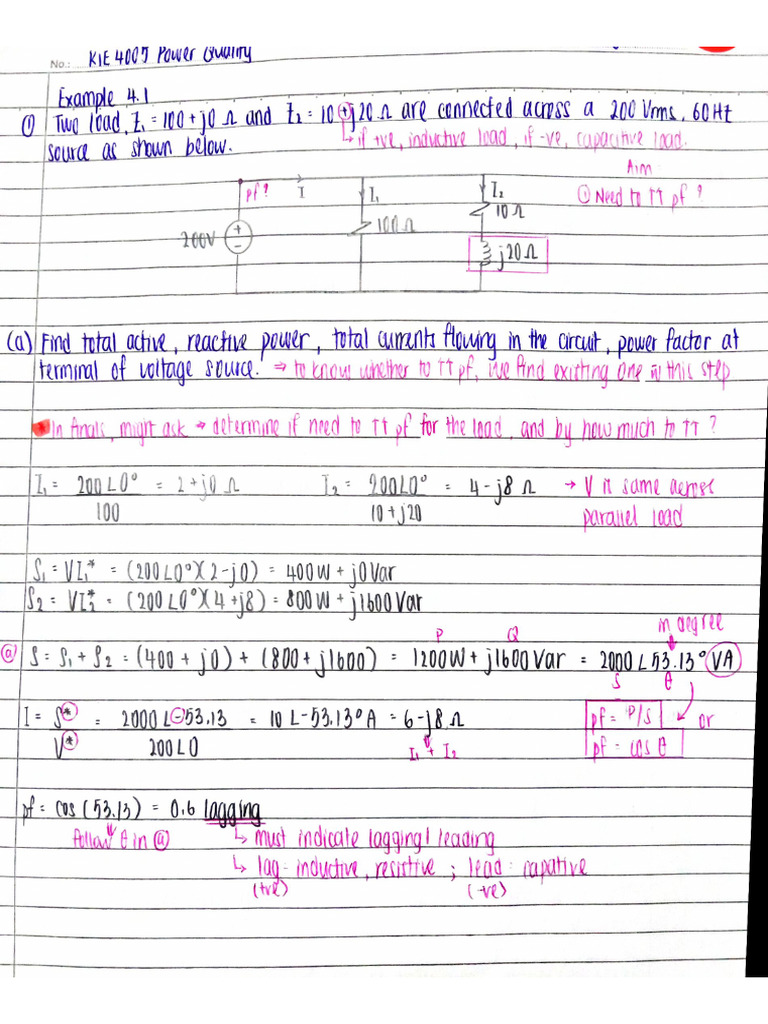 No.: KIE 4005 Power Quality
Example 4.1
① Two load, Z₁ = 100 + j0 Ω and Z₂ = 10 + j20 Ω are connected across a 200 Vrms, 60Hz
↳ if +ve, inductive load, if -ve, capacitive load.
source as shown below.
Aim
① Need to ↑↑ pf ?
pf? I I₁ I₂
10 Ω
200V + - 100 Ω
j20 Ω
(a) Find total active, reactive power, total currents flowing in the circuit, power factor at
terminal of voltage source. → to know whether to ↑↑ pf, we find existing one in this step
* In finals, might ask → determine if need to ↑↑ pf for the load, and by how much to ↑↑ ?
I₁ = 200∠0° / 100 = 2 + j0 Ω I₂ = 200∠0° / 10 + j20 = 4 - j8 Ω → V is same across
parallel load
S₁ = VI₁* = (200∠0°)(2 - j0) = 400W + j0Var
S₂ = VI₂* = (200∠0°)(4 + j8) = 800W + j1600Var
P Q in degree
ⓐ S = S₁ + S₂ = (400 + j0) + (800 + j1600) = 1200W + j1600Var = 2000∠53.13° VA
S θ
I = S* / V* = 2000∠-53.13 / 200∠0 = 10∠-53.13° A = 6 - j8 Ω pf = P/S or
I₁ + I₂ pf = cos θ
pf = cos (53.13) = 0.6 lagging
follow θ in ⓐ ↳ must indicate lagging/leading
↳ lag - inductive, resistive ; lead - capative
(+ve) (-ve)